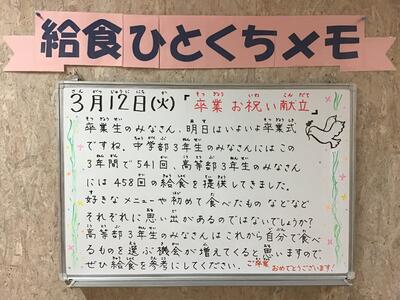 給食ひとくちメモ
3月12日(火)「卒業お祝い献立」
卒業生のみなさん、明日はいよいよ卒業式
ですね。中学部3年生のみなさんにはこの
3年間で541回、高等部3年生のみなさん
には458回の給食を提供してきました。
好きなメニューや初めて食べたものなどなど
それぞれに思い出があるのではないでしょうか?
高等部3年生のみなさんはこれから自分で食べ
るものを選ぶ機会が増えてくると思いますので、
ぜひ給食を参考にしてください。
ご卒業
おめでとうございます!